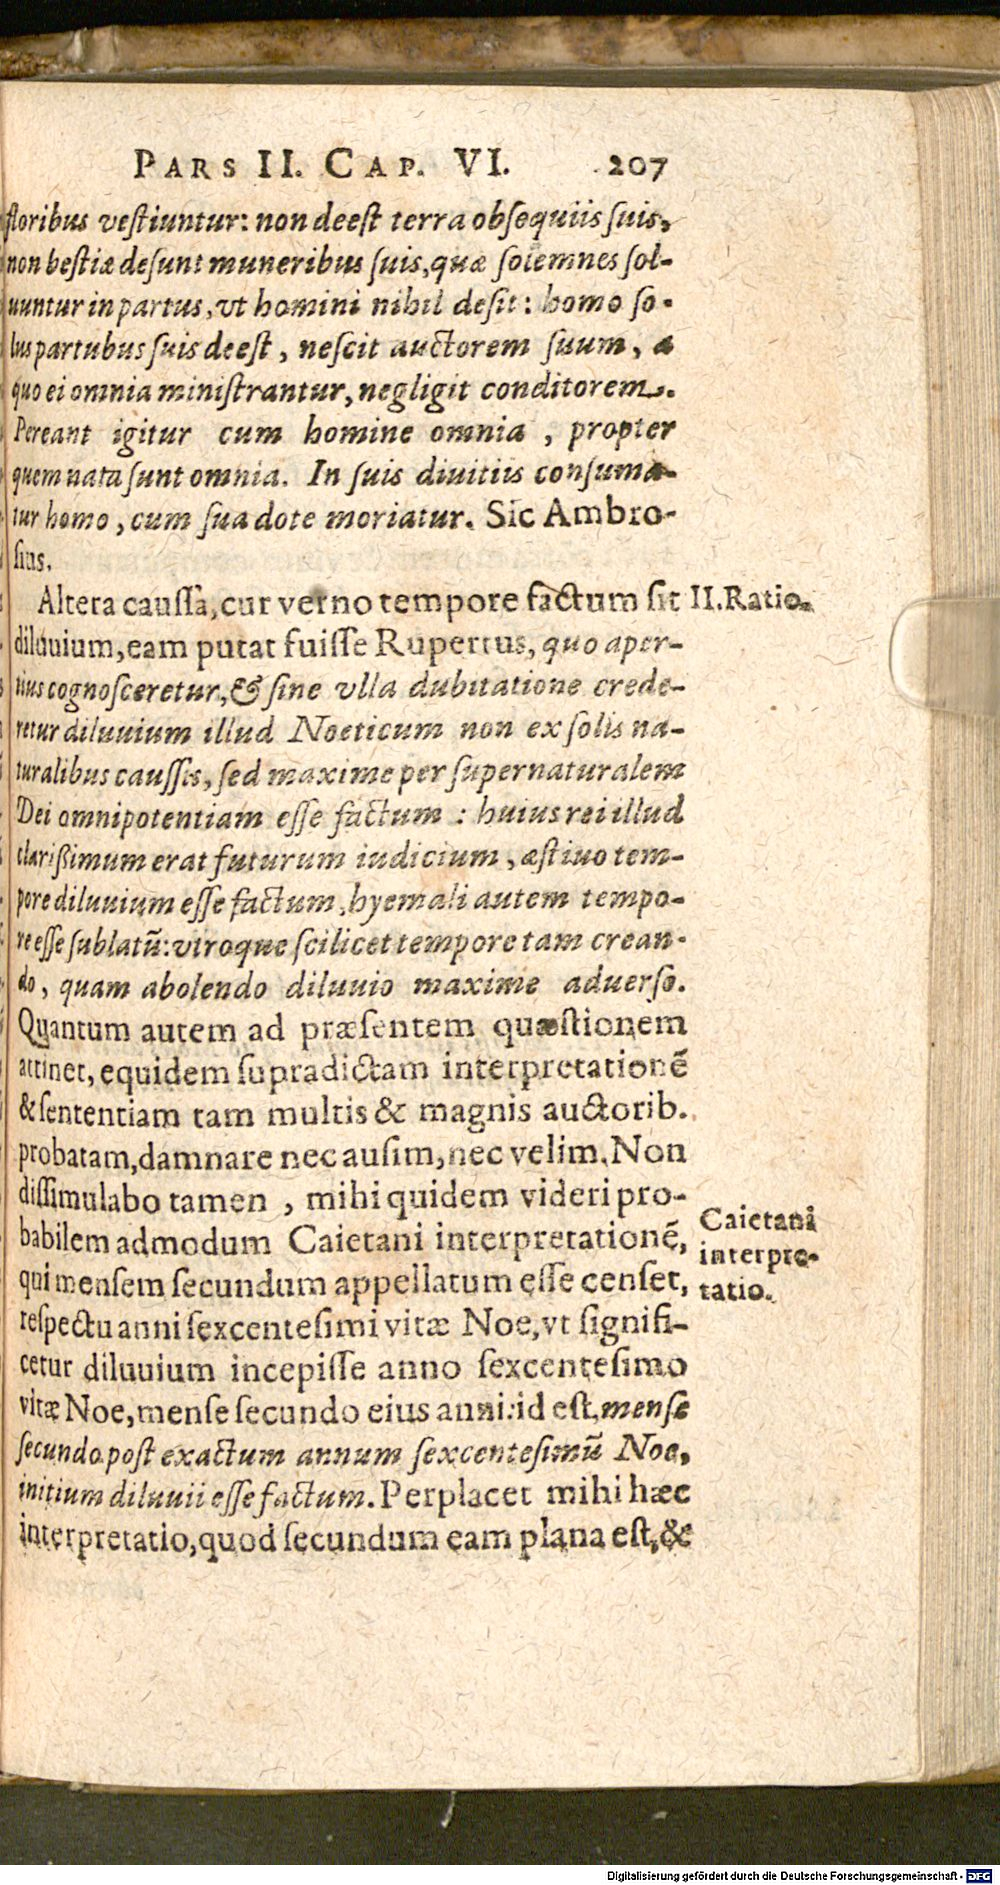 PARS II. CAP. VI. 207
floribus veſtiuntur: non deeſt terra obſequiis ſuis,
non beſtiæ deſunt muneribus ſuis, quæ ſolemnes ſol-
uuntur in partus, vt homini nihil deſit: homo ſo-
lus partubus ſuis deeſt, neſcit auctorem ſuum, a
quo ei omnia miniſtrantur, negligit conditorem.
Pereant igitur cum homine omnia, propter
quem nata ſunt omnia. In ſuis diuitiis conſuma-
tur homo, cum ſua dote moriatur. Sic Ambro-
ſius.
Altera cauſſa, cur verno tempore factum ſit
II. Ratio.
diluuium, eam putat fuiſſe Rupertus, quo aper-
tius cognoſceretur, & ſine vlla dubitatione crede-
retur diluuium illud Noeticum non ex ſolis na-
turalibus cauſſis, ſed maxime per ſupernaturalem
Dei omnipotentiam eſſe factum: huius rei illud
clarißimum erat futurum iudicium, æſtiuo tem-
pore diluuium eſſe factum, hyemali autem tempo-
re eſſe ſublatũ: vtroque ſcilicet tempore tam crean-
do, quam abolendo diluuio maxime aduerſo.
Quantum autem ad præſentem quæſtionem
attinet, equidem ſupradictam interpretationẽ
& ſententiam tam multis & magnis auctorib.
probatam, damnare nec auſim, nec velim. Non
diſſimulabo tamen, mihi quidem videri pro-
babilem admodum Caietani interpretationẽ,
Caietani
interpre-
tatio.
qui menſem ſecundum appellatum eſſe cenſet,
reſpectu anni ſexcenteſimi vitæ Noe, vt ſignifi-
cetur diluuium incepiſſe anno ſexcenteſimo
vitæ Noe, menſe ſecundo eius anni: id eſt, menſe
ſecundo poſt exactum annum ſexcenteſimũ Noe,
initium diluuii eſſe factum. Perplacet mihi hæc
interpretatio, quod ſecundum eam plana eſt, &
Digitalisierung gefördert durch die Deutsche Forschungsgemeinschaft - DFG